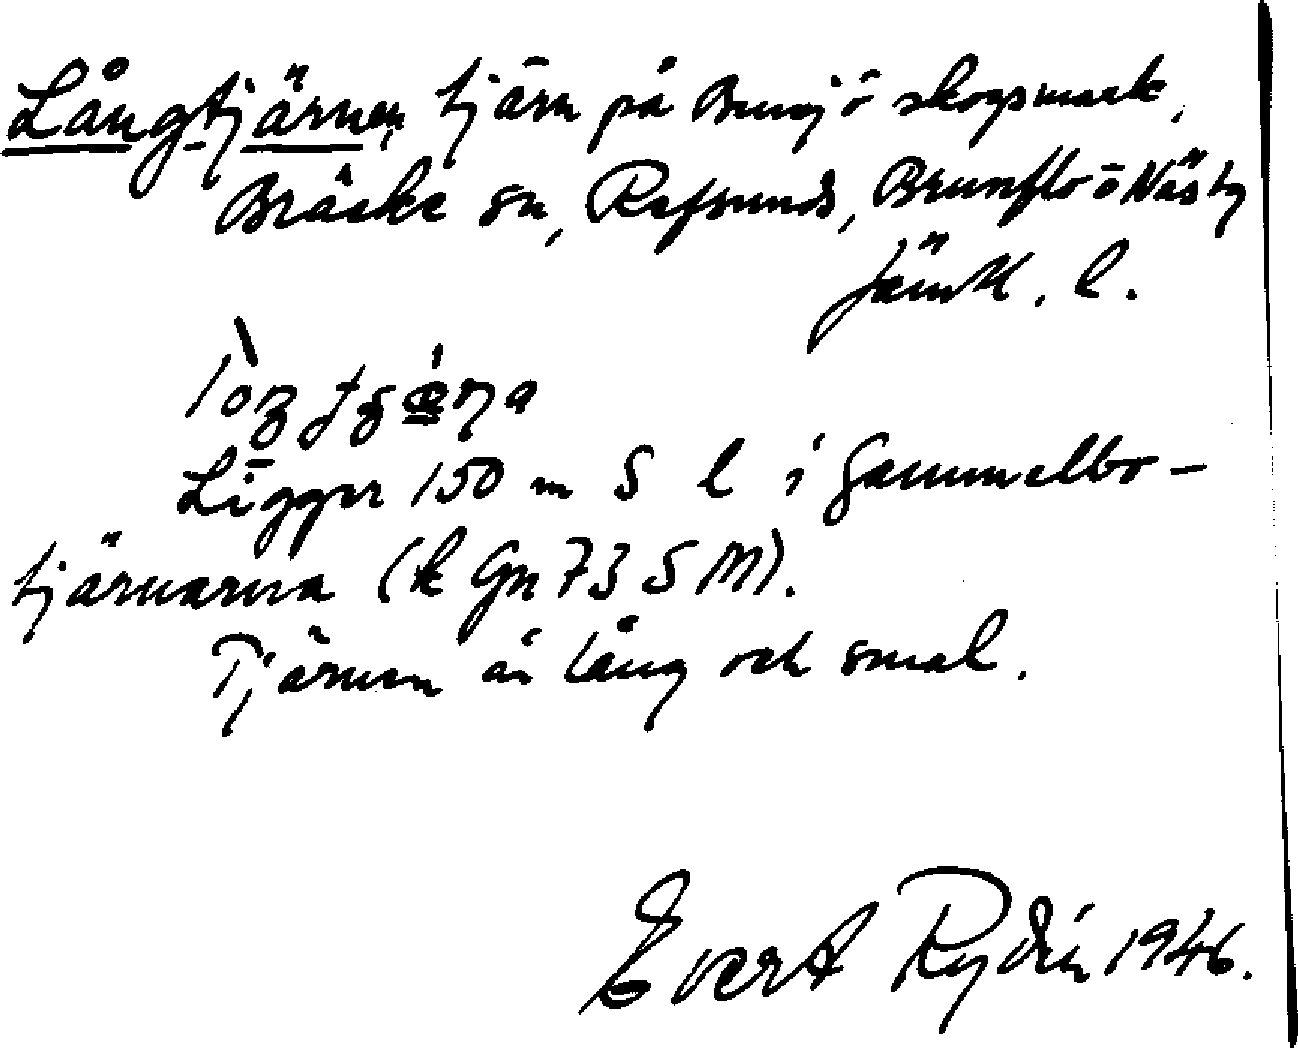 Långtjärnen, tjärn på Bensjö skogsmark,
Bräcke sn, Refsunds, Brunflo o Näs tg
Jämtl. l.
Ligger 150 m S l i Gammelbo-
tjärnarna (k Gn 73 S M).
Tjärnen är lång och smal.
Evert Rydén 1946.